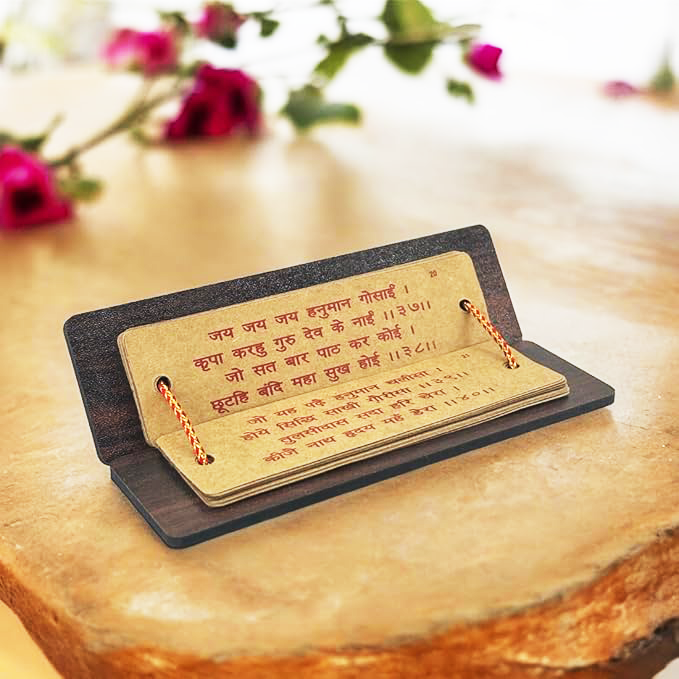 20
जय जय जय हनुमान गोसाईं ।
कृपा करहु गुरु देव के नाईं ।।३७।।
जो सत बार पाठ कर कोई ।
छूटहि बंदि महा सुख होई ।।३८।।
21
जो यह पढ़ै हनुमान चालीसा ।
होय सिद्धि साखी गौरीसा ।।३९।।
तुलसीदास सदा हरि चेरा ।
कीजै नाथ हृदय महँ डेरा ।।४०।।